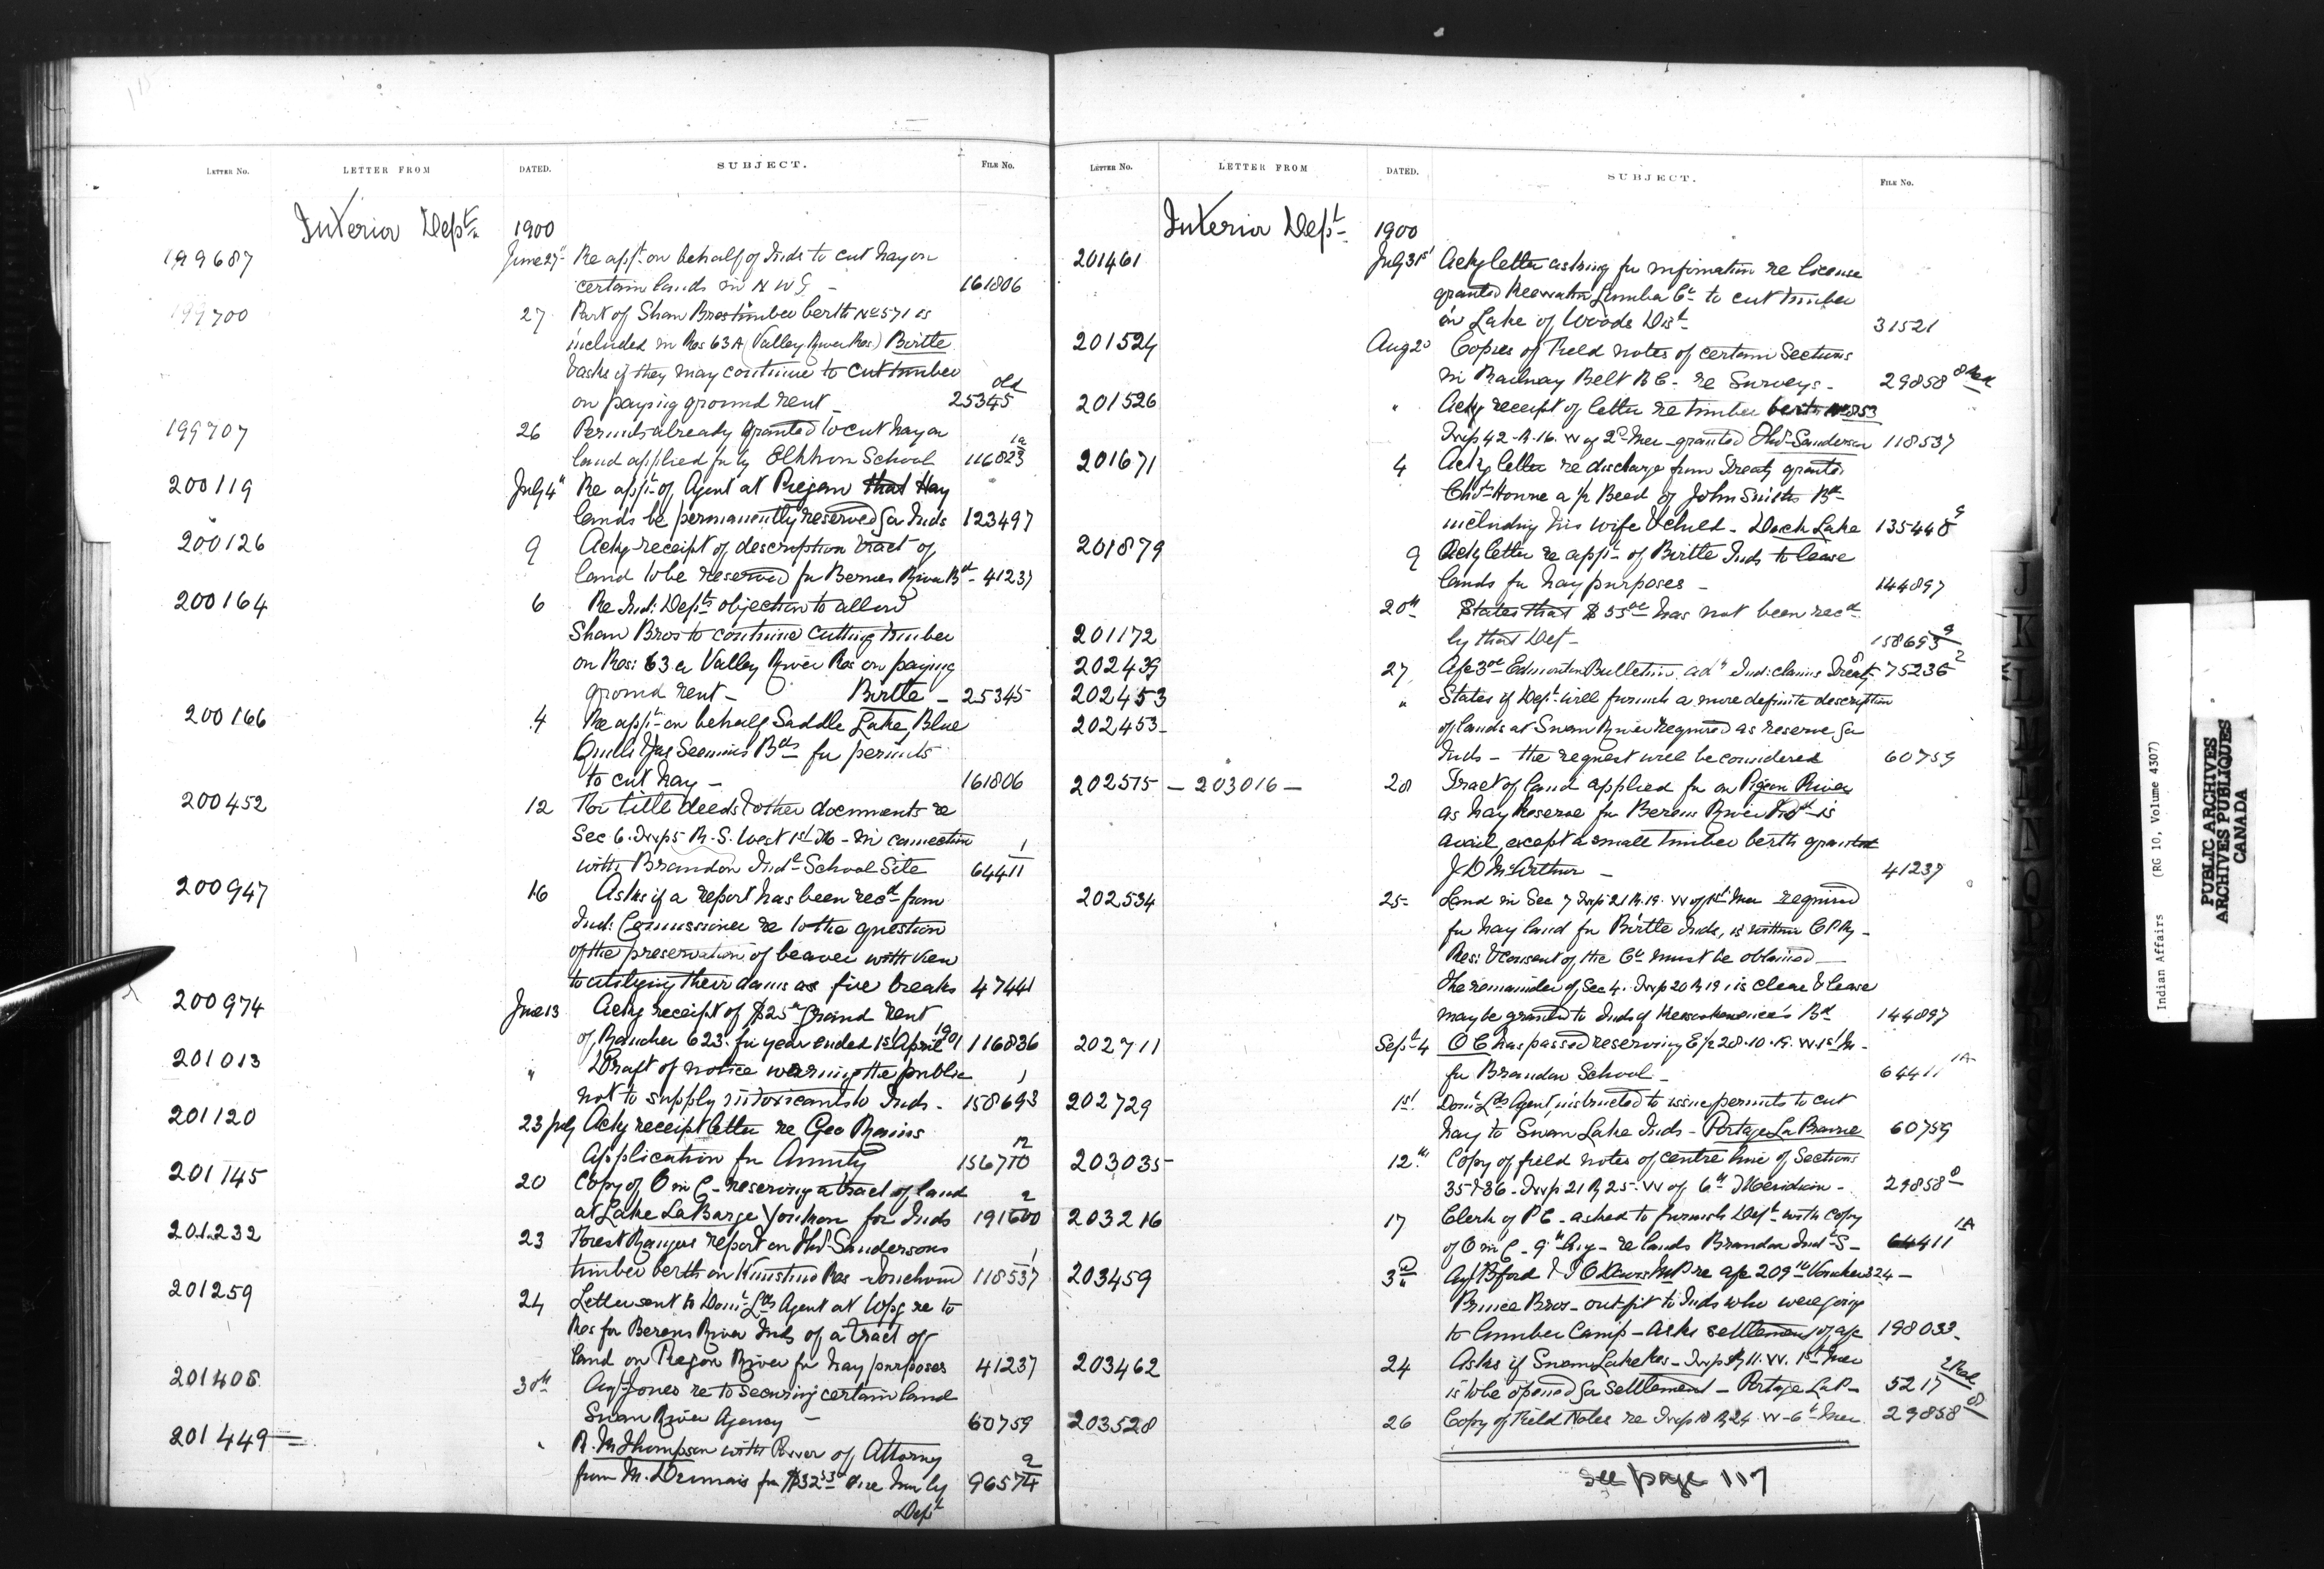 LETTER No. LETTER FROM DATED. SUBJECT. FILE No.
Interior Dept. 1900
199687 June 27" Re appn. on behalf of Inds to cut hay on
certain lands in N W T - 161806
199700 27 Part of Shaw Bros timber berth No 571 is
included in Res 63A (Valley River Res.) Birtle
& asks if they may continue to cut timber
on paying ground rent - 25345 old
199707 26 Permits already granted to cut hay on
land applied for by Elkhorn School 116823 1a
200119 July 4" Re appn. of Agent at Piegan that Hay
lands be permanently reserved for Inds 123497
200126 9 Ackg receipt of description tract of
land to be reserved for Berens River Bd - 41237
200164 6 Re Ind: Dept's objection to allow
Shaw Bros to continue cutting timber
on Res: 63a Valley River Res on paying
ground rent - Birtle - 25345
200166 4 Re appn. on behalf Saddle Lake, Blue
Quills & Jas Seenum's Bds for permits
to cut hay - 161806
200452 12 For title deeds & other documents re
Sec 6. Twp 5 R. S. West 1st M - in connection
with Brandon Indl School Site 64411 1
200947 16 Asks if a report has been recd from
Ind: Commissioner re to the question
of the preservation of beaver with view
to utilizing their dams as fire breaks 47441
200974 June 13 Ackg receipt of $25 Ground Rent
of Rancher 623. for year ended 1st April 1901 116836
201013 " Draft of notice warning the public
not to supply intoxicants to Inds - 158693 1
201120 23 July Ackg receipt letter re Geo
Application for Annuity 156710 12
201145 20 Copy of O in C - reserving a tract of land
at Lake LaBarge Youkon for Inds 191600 2
201232 23 Forest Rangers report on Thos Sandersons
timber berth on Kinistino Res - Touchwood 118537 1
201259 24 Letter sent to Domn Lds Agent at Wpg re to
Res for Berens River Inds of a tract of
land on Pigeon River for hay purposes 41237
201408 30th Agt Jones re to securing certain land
Swan River Agency - 60759
201449 " R. M Thompson with Power of Attorney
from M. for $32 53 due him by 96574 2
Dept
LETTER No. LETTER FROM DATED. SUBJECT. FILE No.
Interior Dept. 1900
201461 July 31st Ackg letter asking for information re license
granted Keewatin Lumber Co to cut timber
in Lake of Woods Dist 31521
201524 Aug 20 Copies of Field notes of certain Sections
in Railway Belt B C - re Surveys - 29858 8
201526 " Ackg receipt of letter re timber berth No 853
Twp 42 - R. 16. W of 2d Mer - granted Thos Sanderson 118537
201671 4 Ackg letter re discharge from Treaty granted
a/c Beed of John Smith's Bd
including his wife & child - Duck Lake 135448 9
201879 9 Ackg letter re appn - of Birtle Inds to lease
lands for hay purposes - 144897
20th States that $55 has not been recd
201172 by that Dept - 158693 9
202439 27 A/c 3 Edmonton Bulletin adv Ind: claims Treaty 8 - 75236 2
202453 " States if Dept will furnish a more definite description
202453 - of lands at Swan River required as reserve for
Inds - the request will be considered 60759
202515 - 203016 - 28 Tract of land applied for on Pigeon River
as hay Reserve for Berens River Bd is
avail, except a small timber berth granted
J D McArthur - 41237
202534 25 - Land in Sec 7 Twp 21 R. 19. W of 1st Mer required
for hay land for Birtle Inds, is within C P Ry -
Res: & consent of the Co must be obtained -
The remainder of Sec 4. Twp 20 R 19, is clear & lease
may be granted to Inds of Bd 144897
202711 Sept 4 O C has passed reserving E/2 28. 10. 19. W 1st M -
for Brandon School - 64411 1A
202729 1st Domn Lds Agent, instructed to issue permits to cut
hay to Swan Lake Inds - Portage La Prairie 60759
203035 12th Copy of field notes of centre line of Sections
35 & 36 - Twp 21 R 25. W of 6th Meridian - 29858 8
203216 17 Clerk of P C - asked to furnish Dept with copy
of O in C - 9th Aug - re lands Brandon Indl S - 64411 1A
203459 3d B'ford & T O Davis M.P. re a/c 209 Voucher 324 -
Prince Bros - out-fit to Inds who were going
to lumber Camp - Asks settlement of a/c 198033 -
203462 24 Asks if Swan Lake Res - Twp R 11. W. 1st Mer
is to be opened for settlement - Portage La P - 5217 2
203528 26 Copy of Field Notes re Twp 18 R 24 W - 6th Mer 29858 8
see page 117
J
K
L
M
N
Q
Indian Affairs (RG 10, Volume 4307)
PUBLIC ARCHIVES
ARCHIVES PUBLIQUES
CANADA